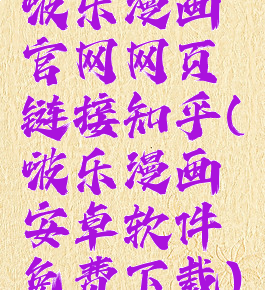 啵乐漫画
官网网页
链接知乎(
啵乐漫画
安卓软件
免费下载)